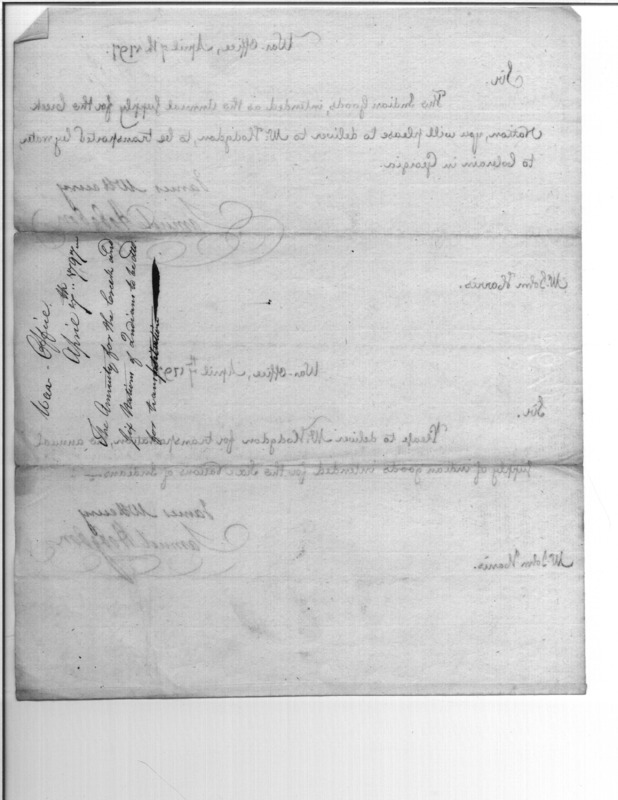 War-Office, April 7th 1797.
Sir.
The Indian Goods, intended as the Annual Supply for the Creek
Nation, you will please to deliver to Mr. Hodgdon, to be transported by water
to Colerain in Georgia.
James McHenry
Samuel Hodgdon
Mr. John Harris.
War-Office
April 7th 1797
The Annuity for the Creek and
Six Nations of Indians to be
for transportation
War-Office, April 7th 179
Sir.
Please to deliver Mr. Hodgdon for transportation, annual
supply of indian goods intended for the Six Nations of Indians
James McHenry
Samuel Hodgdon
Mr. John Harris.